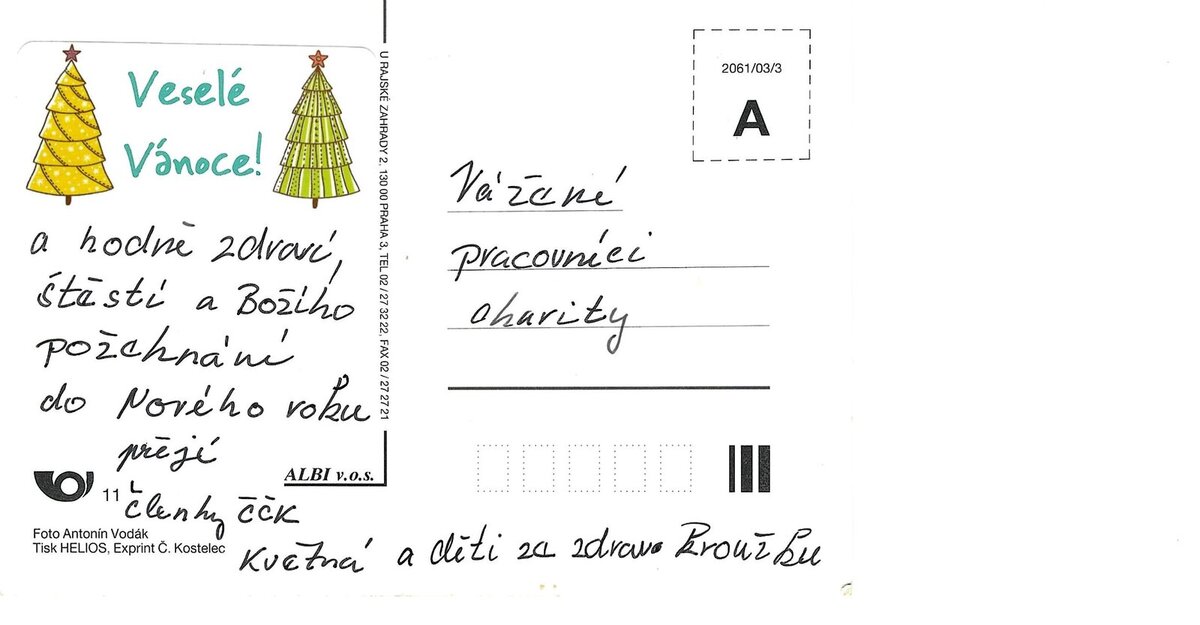 Veselé
Vánoce!
a hodně zdraví,
štěstí a Božího
požehnání
do Nového roku
přejí
členky ČČK
Květná a děti ze zdrav. kroužku
11
Foto Antonín Vodák
Tisk HELIOS, Exprint Č. Kostelec
U RAJSKÉ ZAHRADY 2, 130 00 PRAHA 3, TEL 02 / 27 32 22, FAX 02 / 27 27 21
ALBI v.o.s.
2061/03/3
A
Vážené
pracovníci
charity